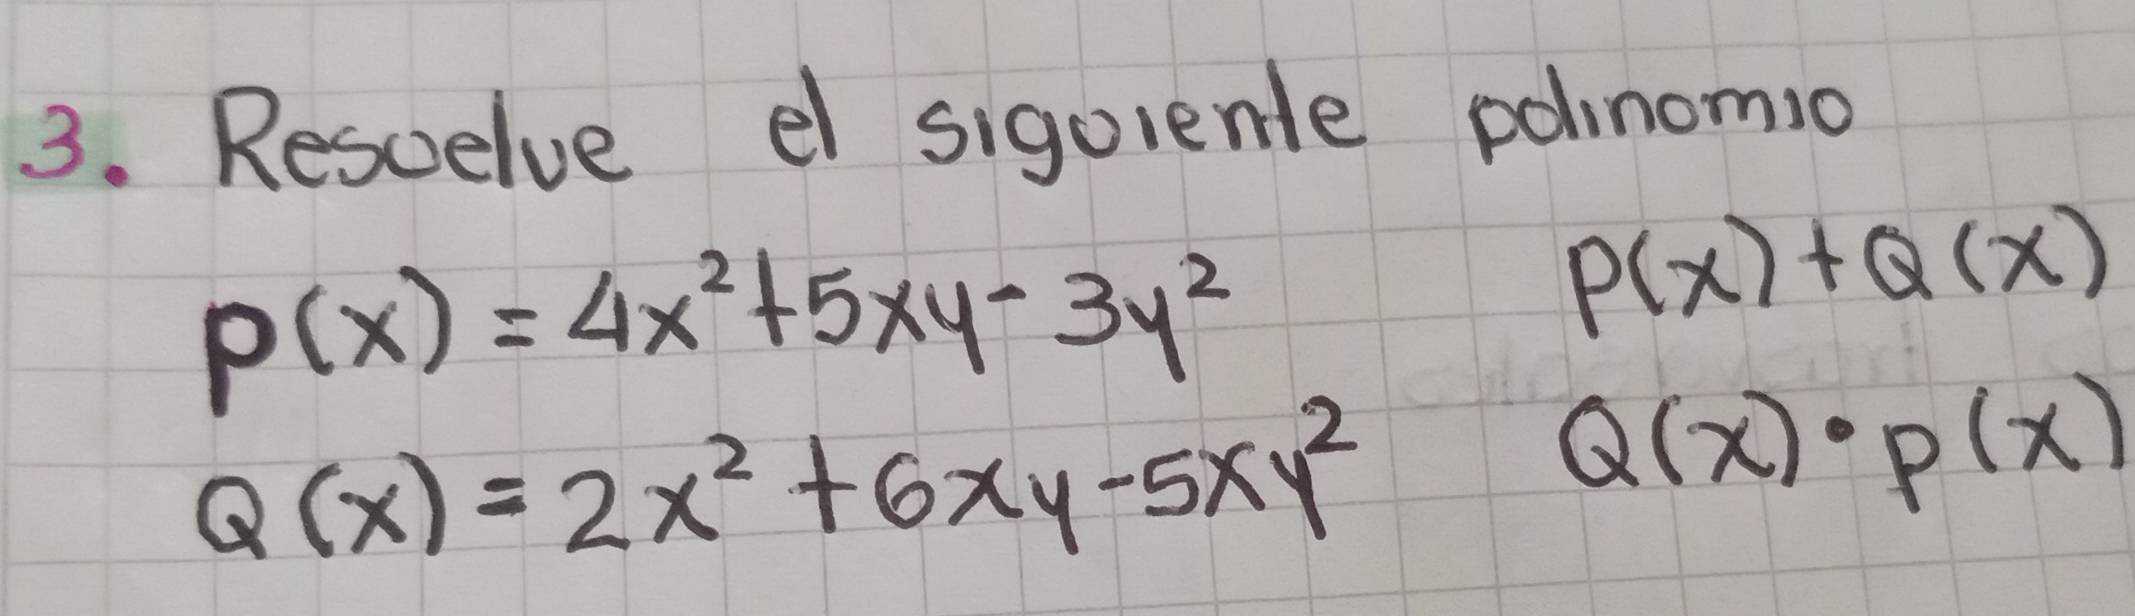 3. Resuelve el siguiente polinomio
p(x) = 4x²+5xy-3y²
P(x)+Q(x)
Q(x) = 2x²+6xy-5xy²
Q(x)·p(x)